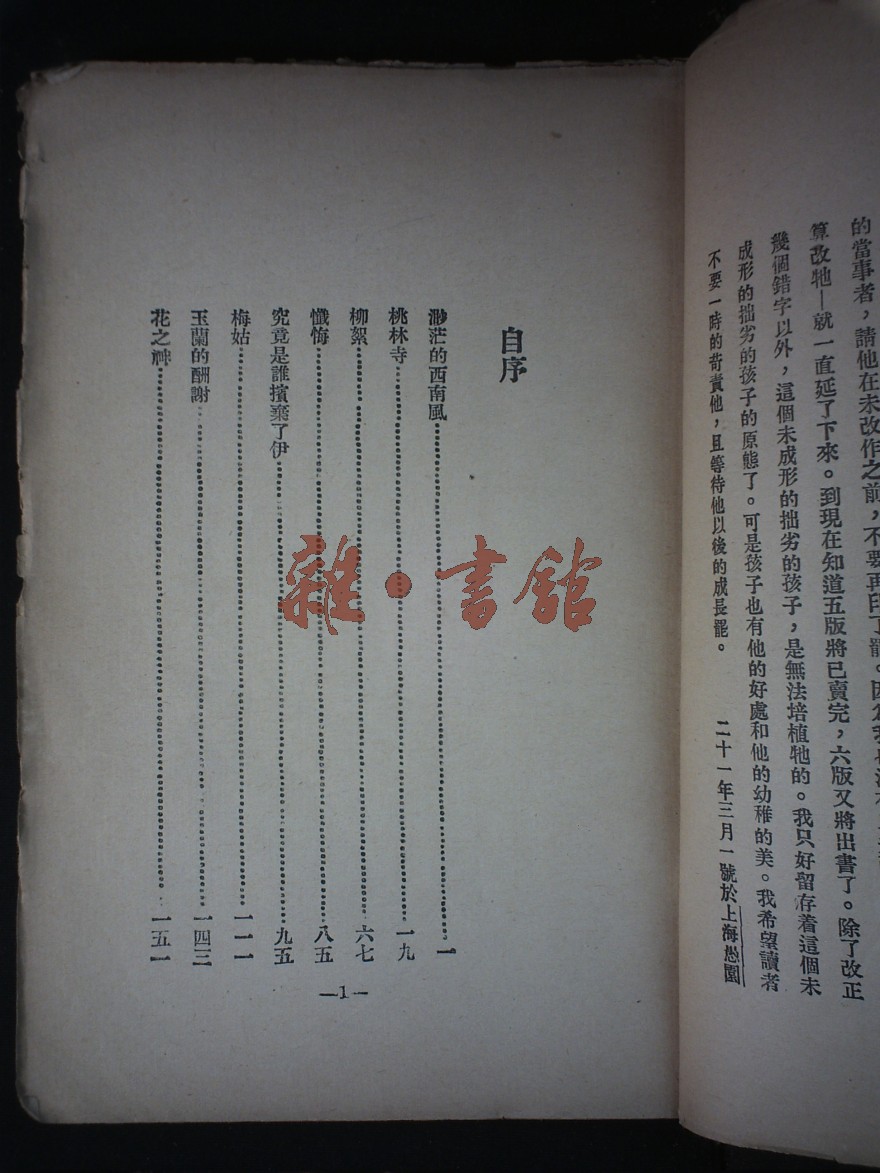 的當事者，請他在未改作之前，不要再印了罷。因爲我
算改牠—就一直延了下來。到現在知道五版將已賣完，六版又將出書了。除了改正
幾個錯字以外，這個未成形的拙劣的孩子，是無法培植牠的。我只好留存着這個未
成形的拙劣的孩子的原態了。可是孩子也有他的好處和他的幼稚的美。我希望讀者
不要一時的苛責他，且等待他以後的成長罷。
二十一年三月一號於上海愚園
自序
渺茫的西南風 一
桃林寺 一九
柳絮 六七
懺悔 八五
究竟是誰擯棄了伊 九五
梅姑 一一一
玉蘭的酬謝 一四三
花之神 一五一
—1—
雜·書館